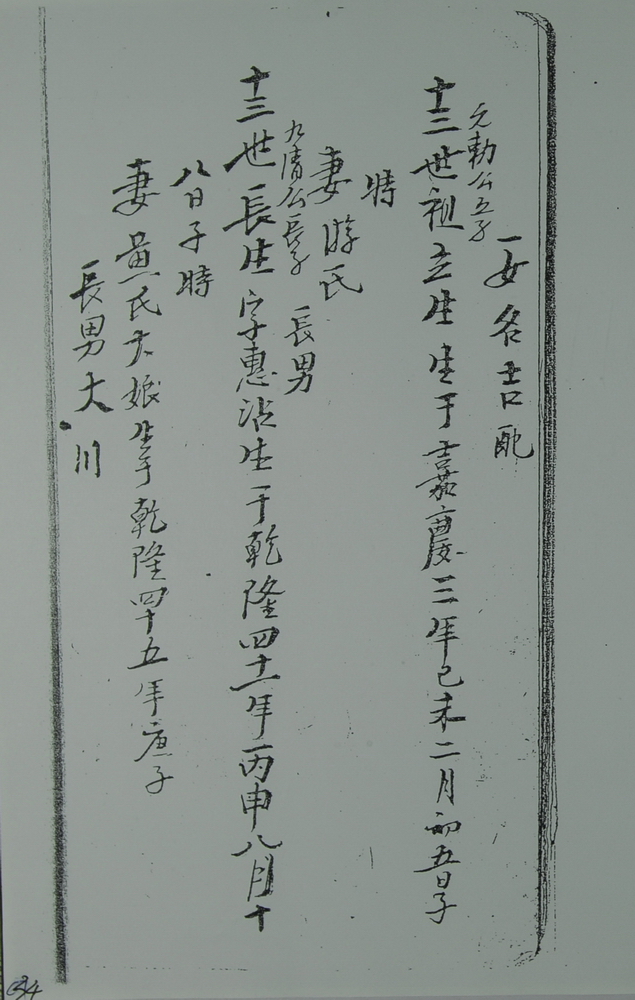 一女名吉配
元勅公五子
十三世祖立生生于嘉慶三年己未二月初五日子
時
妻游氏
長男
九清公長子
十三世長生字惠沾生于乾隆四十一年丙申八月十
八日子時
妻黄氏大娘生于乾隆四十五年庚子
長男大川